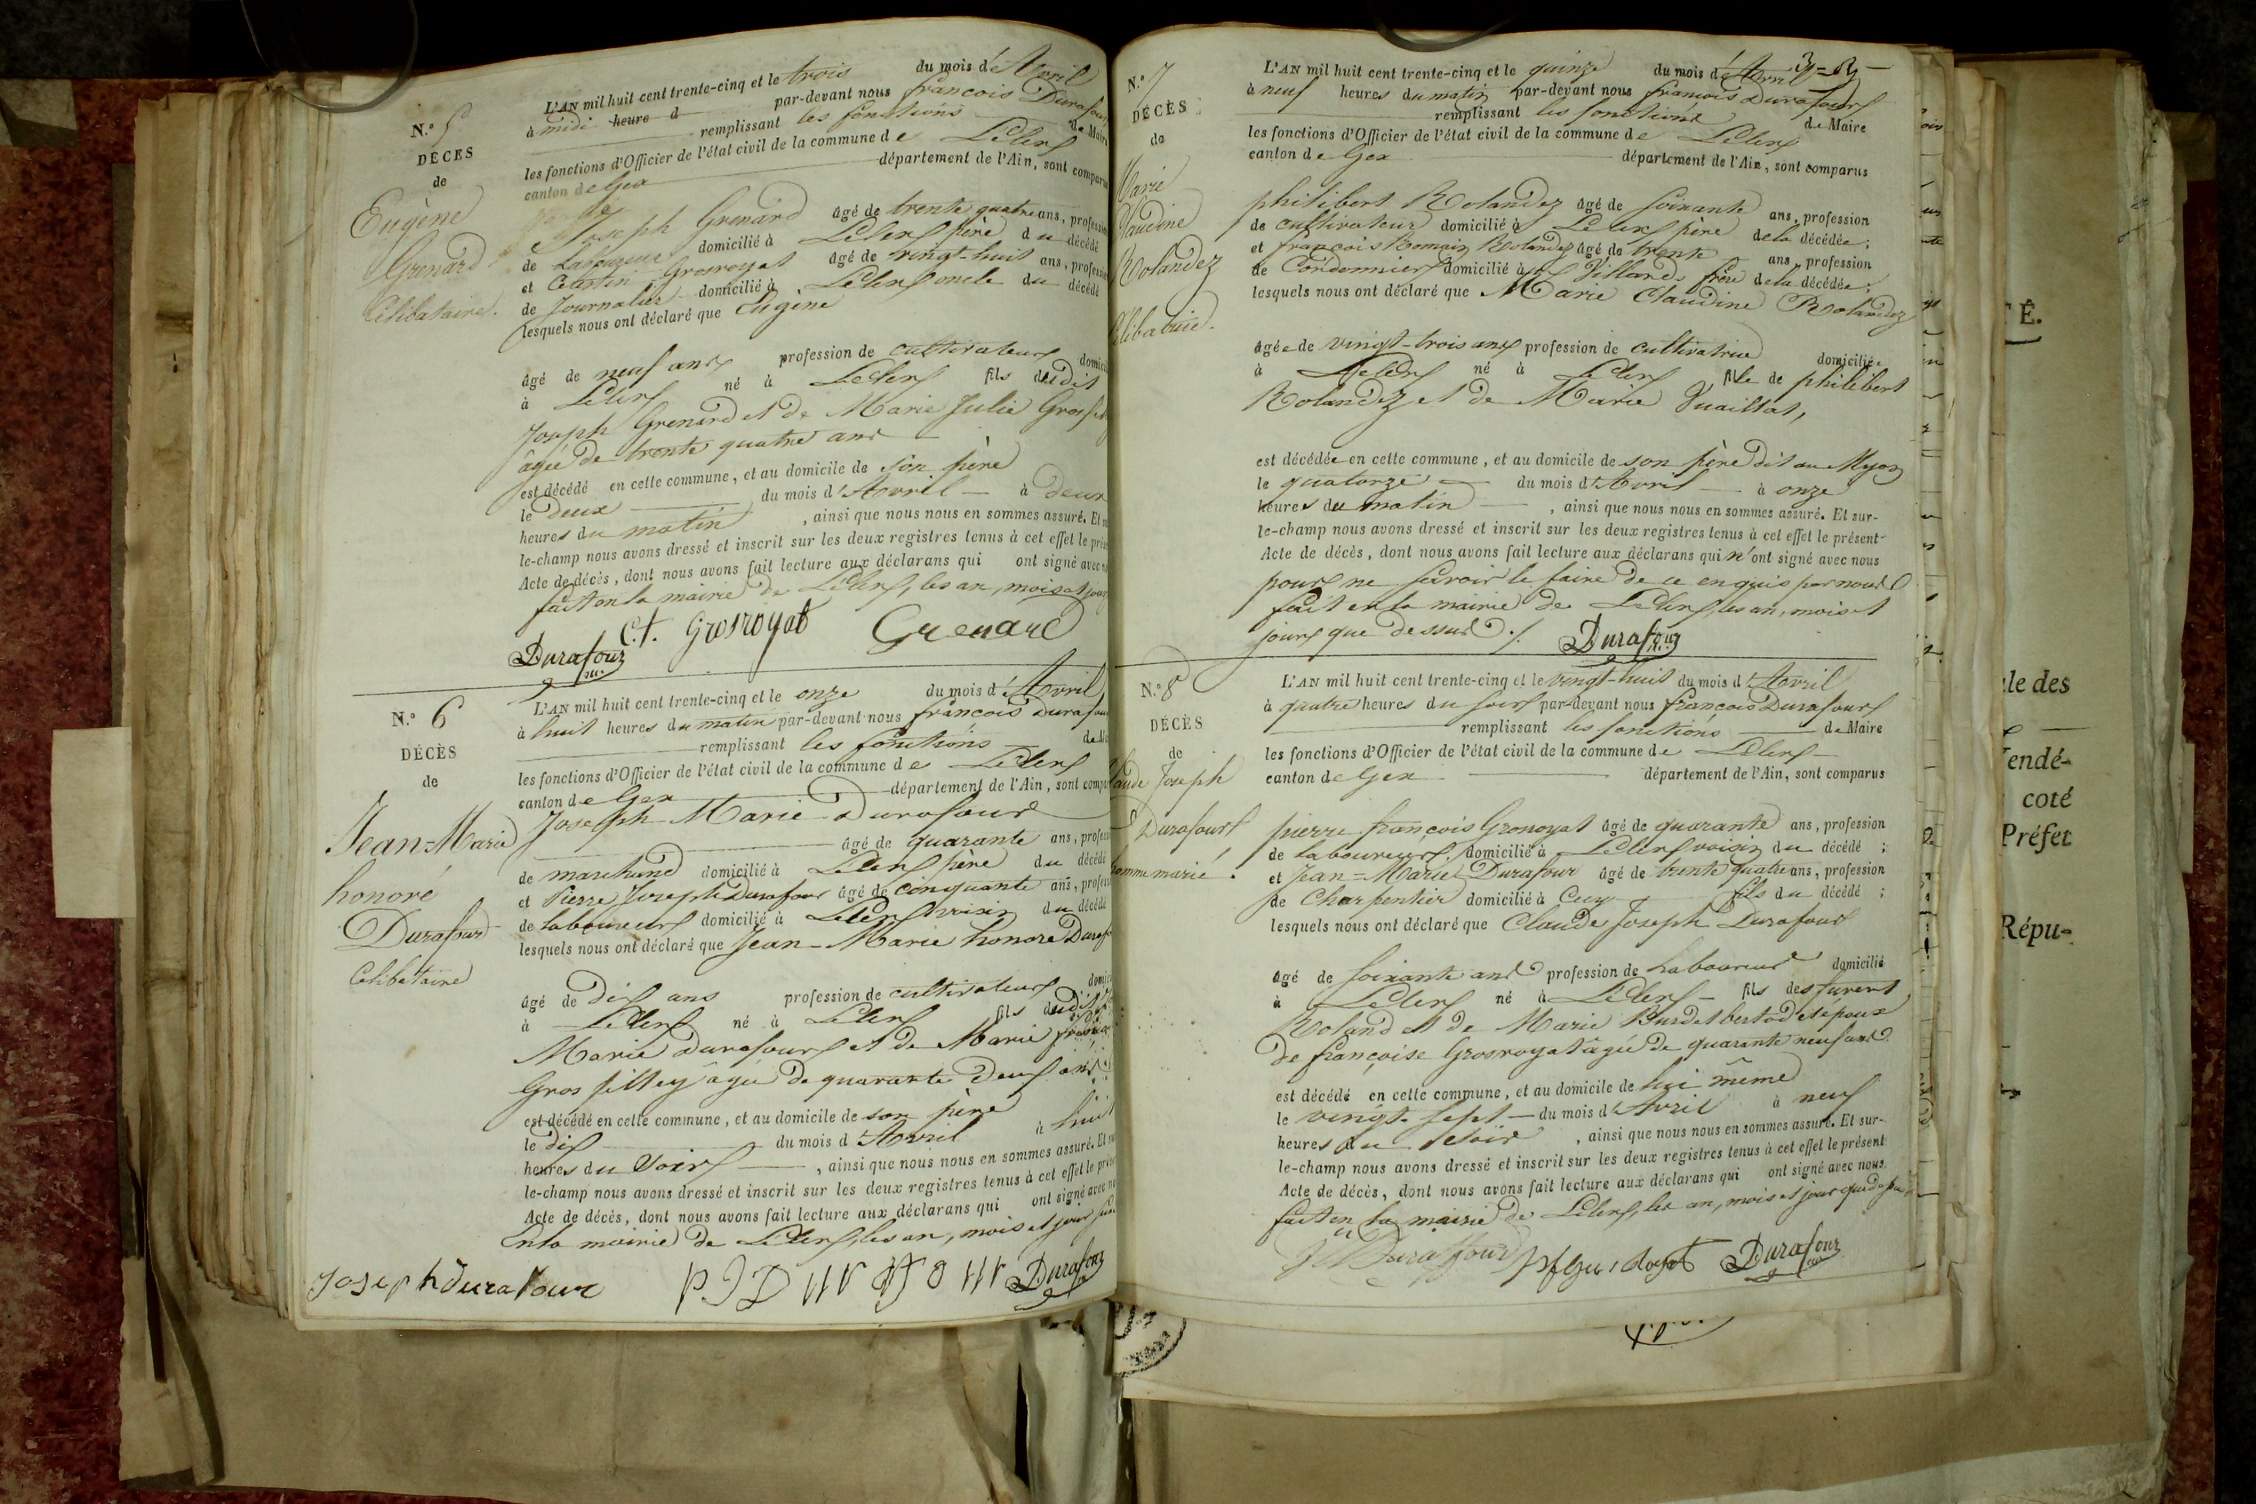 N.o 5
DÉCES
de
Eugène
Grenard
Célibataire.
L'AN mil huit cent trente-cinq et le trois du mois d'Avril
à midi heure d par-devant nous françois Durafour
remplissant les fonctions de Maire
les fonctions d'Officier de l'état civil de la commune de Lélex
canton de Gex département de l'Ain, sont comparus
Joseph Grenard âgé de trente quatre ans, profession
de Laboureur domicilié à Lélex père du décédé
et Célestin Grosroyat âgé de vingt-huit ans, profession
de Journalier domicilié à Lélex oncle du décédé
lesquels nous ont déclaré que Eugène
âgé de neuf ans profession de cultivateur domicilié
à Lélex né à Lélex fils dudit
Joseph Grenard et de Marie Julie Gros
âgée de trente quatre ans
est décédé en cette commune, et au domicile de son père
le deux du mois d'Avril à deux
heures du matin, ainsi que nous nous en sommes assuré. Et
le-champ nous avons dressé et inscrit sur les deux registres tenus à cet effet le
Acte de décès, dont nous avons fait lecture aux déclarans qui ont signé avec
fait en la mairie de Lélex, les an, mois et jour
Durafour C.t. Grosroyat Grenard
N.o 6
DÉCÈS
de
Jean-Marie
honoré
Durafour
Celibataire
L'AN mil huit cent trente-cinq et le onze du mois d'Avril
à huit heures du matin par-devant nous françois Durafour
remplissant les fonctions
les fonctions d'Officier de l'état civil de la commune de Lélex
canton de Gex département de l'Ain, sont
Joseph Marie Durafour
âgé de quarante ans,
de marchand domicilié à Lélex père du décédé
et Pierre Joseph Durafour âgé de cinquante ans,
de laboureur domicilié à Lélex voisin du décédé
lesquels nous ont déclaré que Jean-Marie honoré
âgé de dix ans profession de cultivateur
à Lélex né à Lélex fils dudit
Marie Durafour et de Marie
Gros filley âgée de quarante deux ans
est décédé en cette commune, et au domicile de son père
le dix du mois d'Avril à huit
heures du Soir, ainsi que nous nous en sommes assuré. Et
le-champ nous avons dressé et inscrit sur les deux registres tenus à cet effet le
Acte de décès, dont nous avons fait lecture aux déclarans qui ont signé avec
en la mairie de Lélex, les an, mois et jour
Joseph durafour Durafour
N.o 7
DÉCÈS
de
Marie
Claudine
Rolandez
Célibataire.
L'AN mil huit cent trente-cinq et le quinze du mois d'Avril
à neuf heures du matin par-devant nous françois Durafour
remplissant les fonctions de Maire
les fonctions d'Officier de l'état civil de la commune de Lélex
canton de Gex département de l'Ain, sont comparus
philibert Rolandez âgé de soixante ans, profession
de cultivateur domicilié à Lélex père de la décédée;
et françois Romain Rolandez âgé de trente ans, profession
de Cordonnier domicilié à frère de la décédée;
lesquels nous ont déclaré que Marie Claudine Rolandez
âgée de vingt-trois ans profession de cultivatrice domiciliée
à Lélex né à Lélex fille de philibert
Rolandez et de Marie Vuaillat,
est décédée en cette commune, et au domicile de son père dit au
le quatorze du mois d'Avril à onze
heures du matin, ainsi que nous nous en sommes assuré. Et sur-
le-champ nous avons dressé et inscrit sur les deux registres tenus à cet effet le présent
Acte de décès, dont nous avons fait lecture aux déclarans qui n'ont signé avec nous
pour ne savoir le faire de ce enquis par nous
fait en la mairie de Lélex, les an, mois et
jour que dessus ./. Durafour
N.o 8
DÉCÈS
de
Claude Joseph
Durafour
homme marié.
L'AN mil huit cent trente-cinq et le vingt-huit du mois d'Avril
à quatre heures du soir par-devant nous françois Durafour
remplissant les fonctions de Maire
les fonctions d'Officier de l'état civil de la commune de Lélex
canton de Gex département de l'Ain, sont comparus
pierre françois Grosroyat âgé de quarante ans, profession
de laboureur domicilié à Lélex voisin du décédé;
et Jean-Marie Durafour âgé de trente quatre ans, profession
de Charpentier domicilié à fils du décédé;
lesquels nous ont déclaré que Claude Joseph Durafour
âgé de soixante ans profession de Laboureur domicilié
à Lélex né à Lélex fils des furent
Roland et de Marie Burdet bertod et époux
de françoise Grosroyat âgée de quarante neuf ans
est décédé en cette commune, et au domicile de lui même
le vingt-sept du mois d'Avril à neuf
heures du soir, ainsi que nous nous en sommes assuré. Et sur-
le-champ nous avons dressé et inscrit sur les deux registres tenus à cet effet le présent
Acte de décès, dont nous avons fait lecture aux déclarans qui ont signé avec nous
fait en la mairie de Lélex, les an, mois et jour que
Durafour Durafour
TÉ.
le des
endé-
coté
Préfet
Répu-